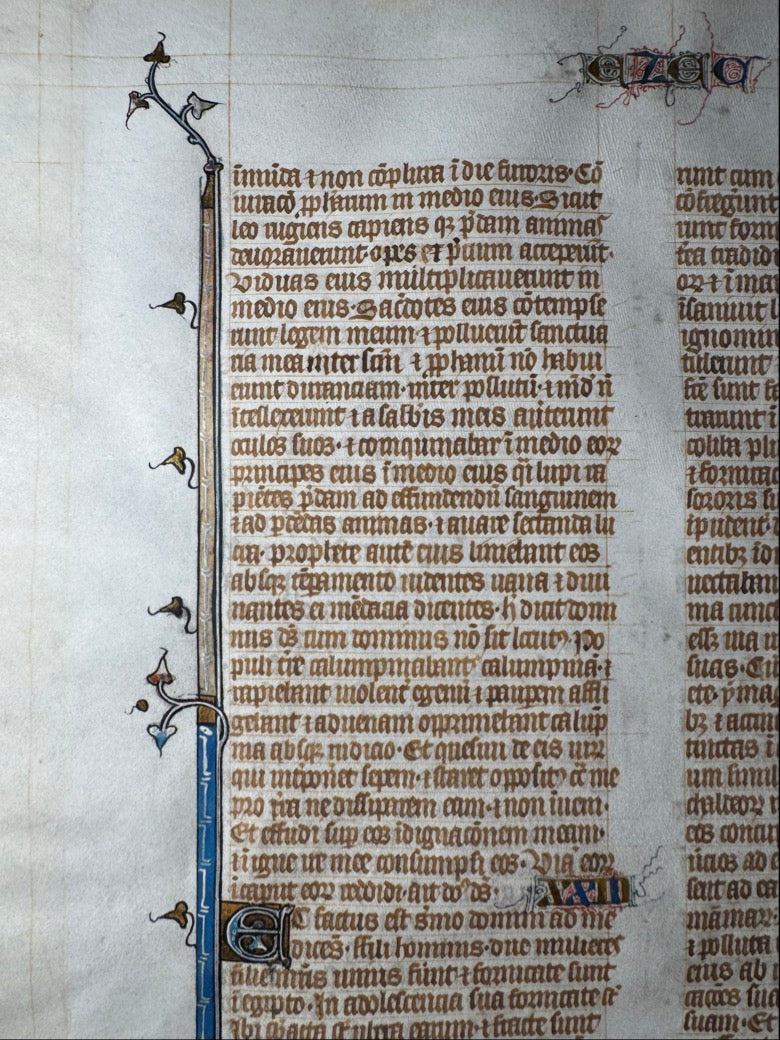 EZEC
īmūda ⁊ non cōpluta ī die furoris· Cō
iuracō ꝓphetarum in medio eius· Sicut
leo rugiens capiens q; p̄dam animas
deuorauerunt· opes et p̄cium acceperūt·
Viduas eius multiplicauerunt in
medio eius· Sac̄dotes eius cōtempse
runt legem meam· ⁊ polluerūt sanctua
ria mea inter scm̄ ⁊ ꝓphanū nō habue
runt distanciam· int̄er pollutū· ⁊ mūd n̄
ītellexerunt ⁊ a sabb̄is meis au̅terunt
oculos suos· ⁊ coinquinabar ī medio eoꝝ
principes eius ī medio eius q̄i lupi ra
piētes p̄dam ad effundendū sanguinem
⁊ ad ꝑdendas animas· ⁊ auare sectanda lu
cra· prophete autē eius liniebant eos
absqꝫ tēꝑamento uidentes uana ⁊ diui
nantes eis mēdacia dicentes· h̄ dicit domi
nus ds̄ cum dominus nō sit locutꝰ· Po
puli t̄re calumpniabantᷣ calumpniā· ⁊
rapiebant uiolenter egenū ⁊ pauꝑem affli
gebant ⁊ aduenam opprimebant calūp
nia absqꝫ iudicio· Et quesiui de eis uirū
qui int̄poneret sepem· ⁊ staret oppositꝰ 9tra me
pro t̄ra ne dissiparem eam· ⁊ non inueni·
Et effudi suꝑ eos īdignacōnem meam·
ī igne ire mee consumpsi eos· Viā eoꝝ
ī caput eoꝝ reddidi· ait do's ds̄· XXIII
Et factus est s̄mo domini ad me
dicēs· fili hominis· due mulieres
filie matris unius fuerūt ⁊ fornicate sunt
ī egipto· In adolescencia sua fornicate st̄
Ibi subacta st̄ ubera earum· ⁊ fracte sunt
runt cum
cōfregūnt
runt forn
tea tradid
oꝝ ⁊ ī ma
īsaniuit l
ignomin
tulerunt
fce sunt fa
traxunt ī
solita pl
⁊ fornica
sororis s
ipudent
entibꝫ īdi
uectaban
ma cunc
essꝫ uia u
suas· Cū
cte· ymа
bꝫ ⁊ accin
tinctas ī
um simil
chaldeoꝝ
eos concu
ūcios ad e
sent ad ea
mamar
⁊ polluta
eius ab
cacōes su
suam· Et